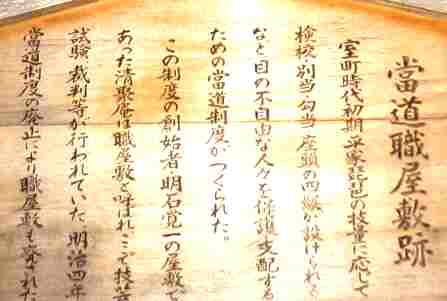 當道職屋敷跡
室町時代初期、平家琵琶の技量に応じて
検校・別当・勾当・座頭の四縁が設けられる
など目の不自由な人々を保護、支配する
ための當道制度がつくられた。
この制度の創始者・明石覚一の屋敷で
あった清聚庵は職屋敷と呼ばれ、ここで技芸
試験、裁判等が行われていた。明治四年
當道制度の廃止により職屋敷も